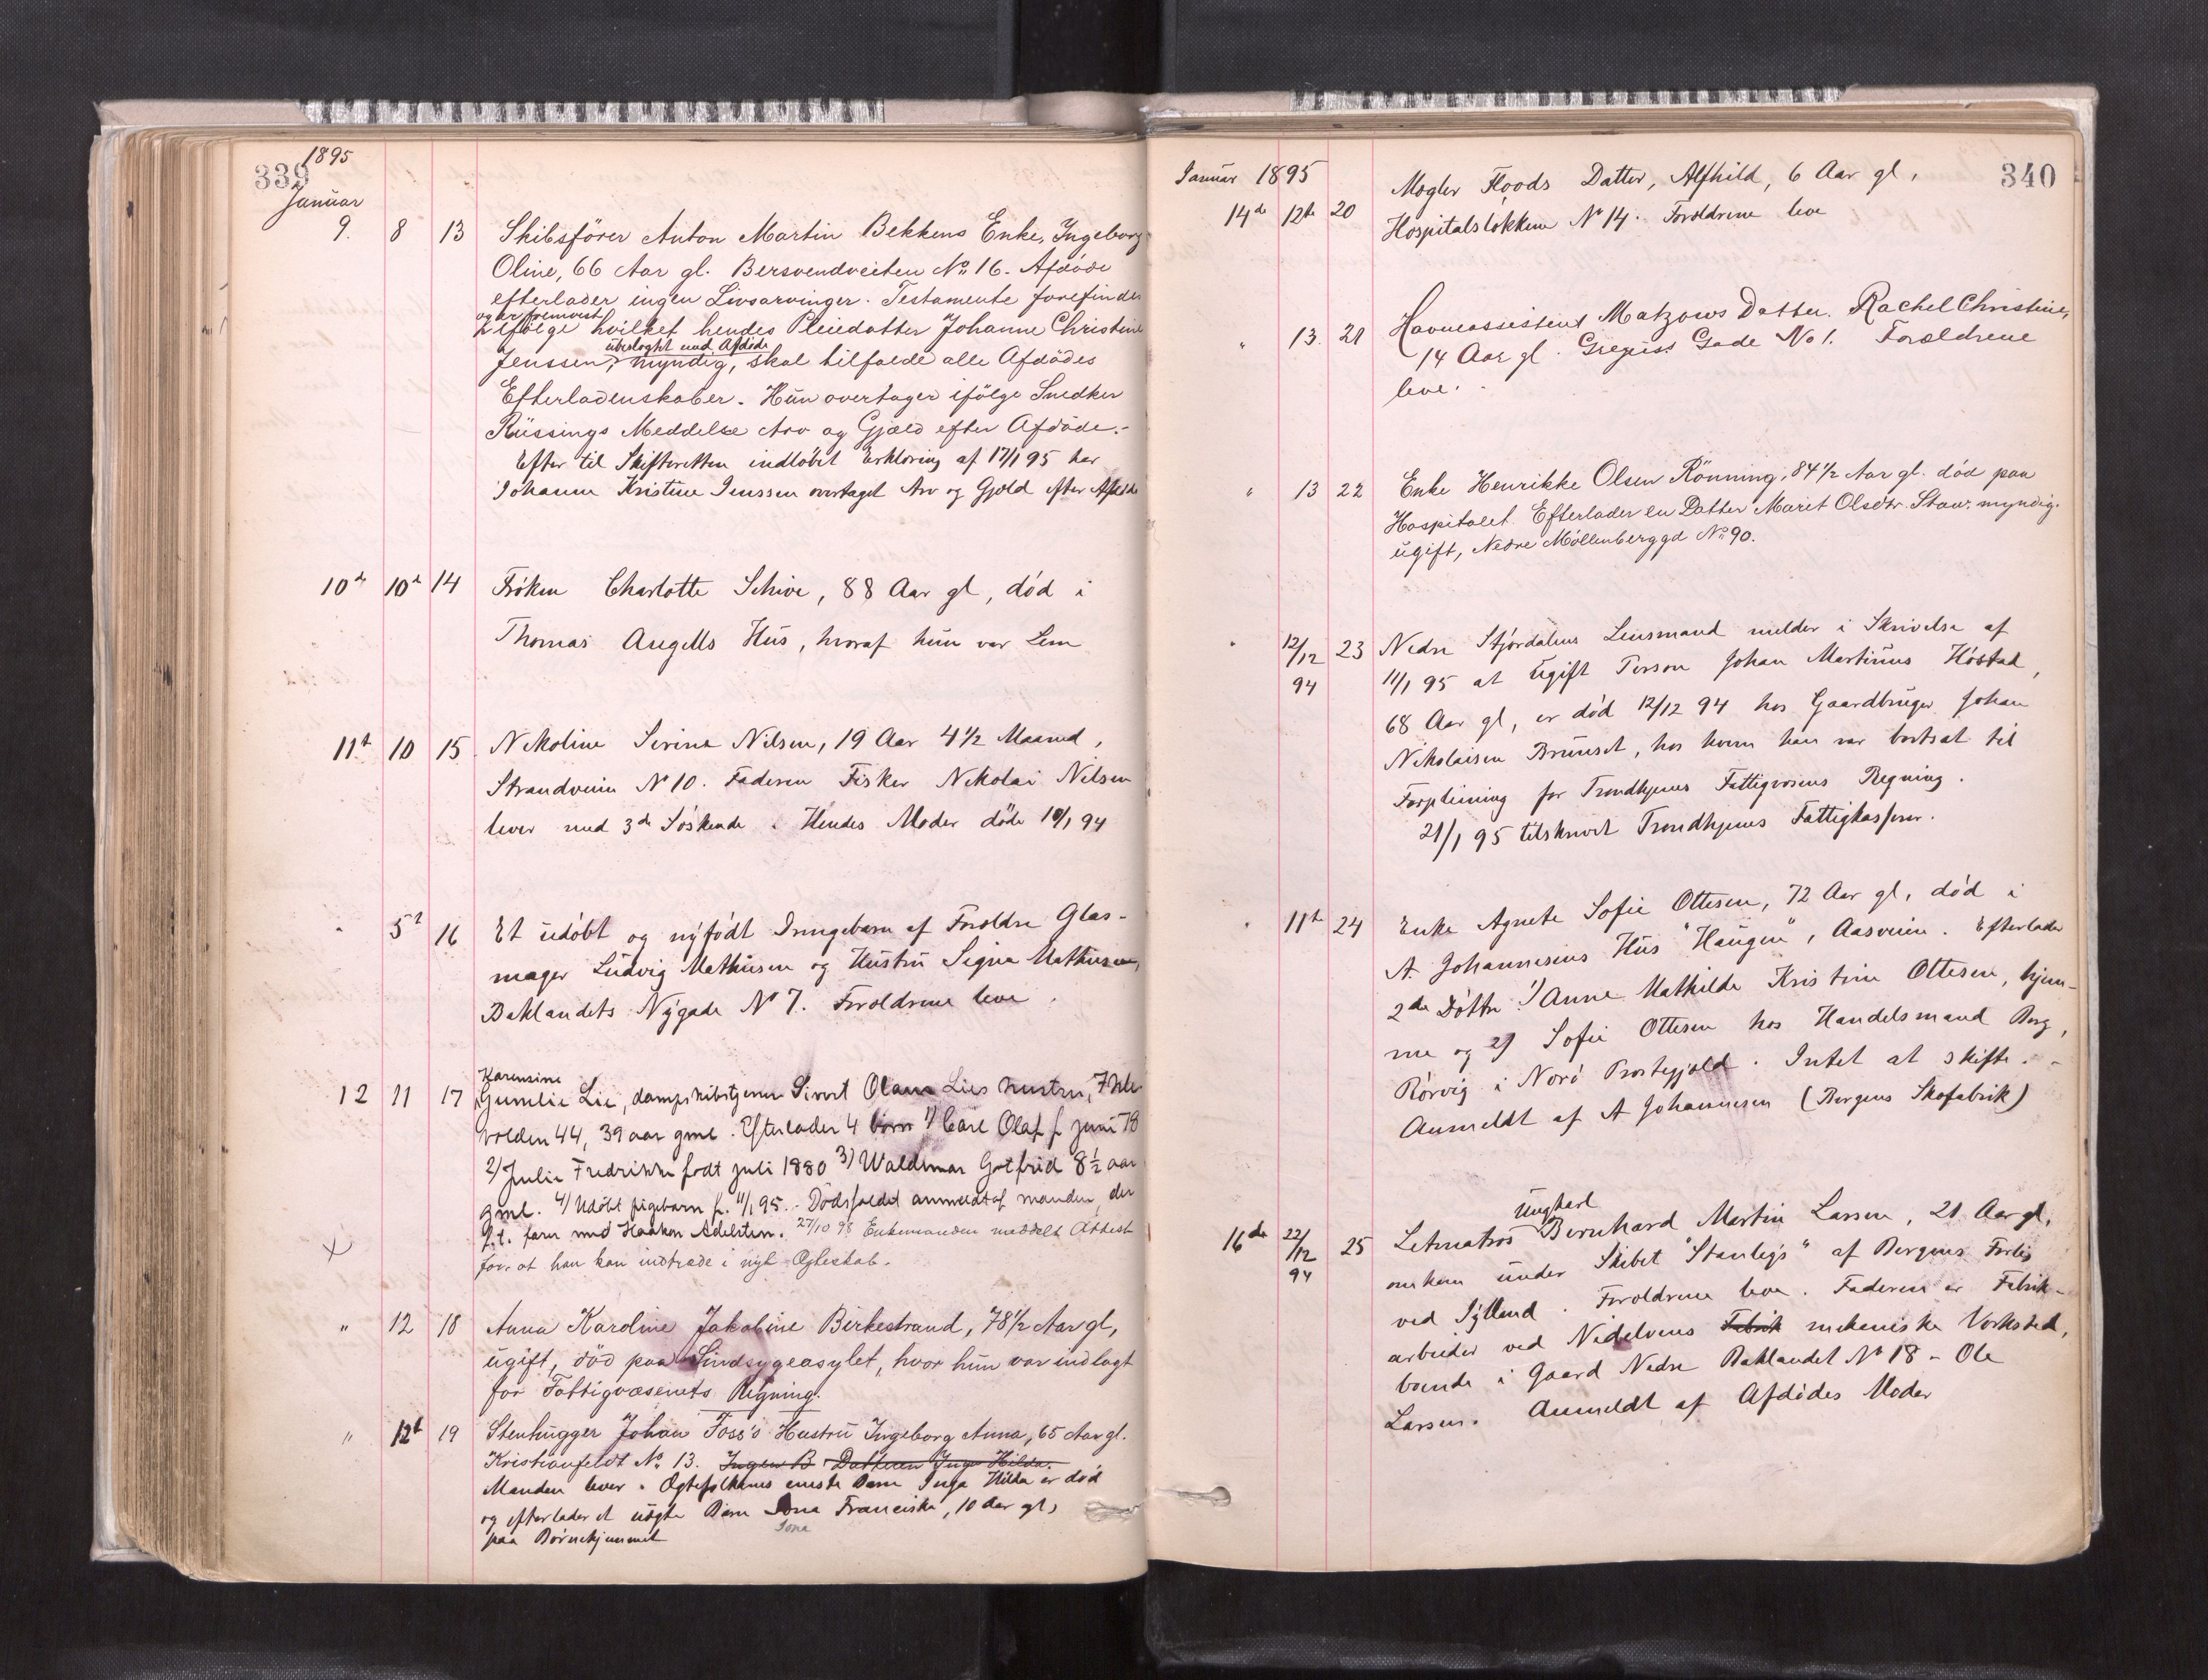 339
1895
Januar
9. 8 13 Skibsfører Anton Martin Bekkens Enke, Ingeborg
Oline, 66 Aar gl. Bersvendveiten No 16. Afdöde
efterlader ingen Livsarvinger. Testamente forefindes
og er fremvist
ifölge hvilket hendes Pleiedatter Johanne Christine
ubeslægtet med Afdöde
Jenssen, myndig, skal tilfalde alle Afdödes
Efterladenskaber. Hun overtager ifölge Snedker
Rüssings Meddelse Arv og Gjæld efter Afdöde.-
Efter til Skifteretten indløbet Erklæring af 17/1 95 har
Johanne Kristine Jenssen overtaget Arv og Gjæld efter Afdøde
10de 10de 14 Frøken Charlotte Schive, 88 Aar gl, død i
Thomas Angells Hus, hvoraf hun var Lem
11te 10 15. Nikoline Serine Nilsen, 19 Aar 4 1/2 Maaned,
Strandveien No 10. Faderen Fisker Nikolai Nilsen
lever med 3de Søskende. Hendes Moder døde 10/1 94
" 5te 16 Et udøbt og nyfødt Drengebarn af Forældre Glas-
mager Ludvig Mathisen og Hustru Signe Mathisen,
Baklandets Nygade No 7. Forældrene leve.
Karensine
12 11 17 Gunelie Lie, dampskibstjener Sivert Olaus Lies hustru, Ihle-
volden 44, 39 aar gml. Efterlader 4 børn 1) Carl Olaf f juni 78
2) Julie Fredrikke født juli 1880 3) Waldemar Gotfrid 8 1/2 aar
gml. 4) Udöbt pigebarn f. 11/1 95. - Dödsfaldet anmeldt af manden, der
p.t. farer med Haakon Adelsten. 27/10 98 Enkemanden meddelt Attest
for at han kan indtræde i nyt Ægteskab.
" 12 18 Anna Karoline Jakobine Birkestrand, 78 1/2 Aar gl,
ugift, död paa Sindsygeasylet, hvor hun var indlagt
for Fattigvæsenets Regning.
" 12te 19 Stenhugger Johan Foss's Hustru Ingeborg Anna, 65 Aar gl.
Kristianfeldt No 13. Ingen B Datteren Inga Hilda.
Manden lever. Ægtefolkenes eneste Barn Inga Hilda er død
og efterlader et uægte Barn Iona Franciska, 10 Aar gl,
Iona
paa Børnehjemmet
340
Januar 1895
14de 12te 20 Mægler Floods Datter, Alfhild, 6 Aar gl,
Hospitalsløkken No 14. Forældrene leve
" 13. 21 Havneassistent Matzows Datter. Rachel Christine,
14 Aar gl. Gregus's Gade No 1. Forældrene
leve.
" 13 22 Enke Henrikke Olsen Rönning, 84 1/2 Aar gl. död paa
Hospitalet. Efterlader en Datter Marit Olsdtr. Stav. myndig.
ugift, Nedre Möllenberggd No 90.
" 12/12 94 23 Nedre Stjørdalens Lensmand melder i Skrivelse af
11/1 95 at ugift Person Johan Martinus Høstad,
68 Aar gl, er død 12/12 94 hos Gaardbruger Johan
Nikolaisen Brunset, hos hvem han var bortsat til
Forpleining for Trondhjems Fattigvæsens Regning.
21/1 95 tilskrevet Trondhjems Fattigkasserer.
" 11te 24 Enke Agnete Sofie Ottesen, 72 Aar gl, død i
A. Johannesens Hus "Haugen", Aasveien. Efterlader
2de Døttre 1) Anne Mathilde Kristine Ottesen, hjem-
me og 2) Sofie Ottesen hos Handelsmand Berg,
Rørvig i Nærø Prestegjæld. Intet at skifte. -
Anmeldt af A Johannesen (Bergens Skofabrik)
Ungkarl
16de 22/12 94 25 Letmatros Bernhard Martin Larsen, 21 Aar gl,
omkom under Skibet "Stanleys" af Bergens Forlis
ved Jylland. Forældrene leve. Faderen er Fabrik-
arbeider ved Nidelvens Fabrik mekaniske Værksted,
boende i Gaard Nedre Baklandet No 18 - Ole
Larsen. Anmeldt af Afdødes Moder